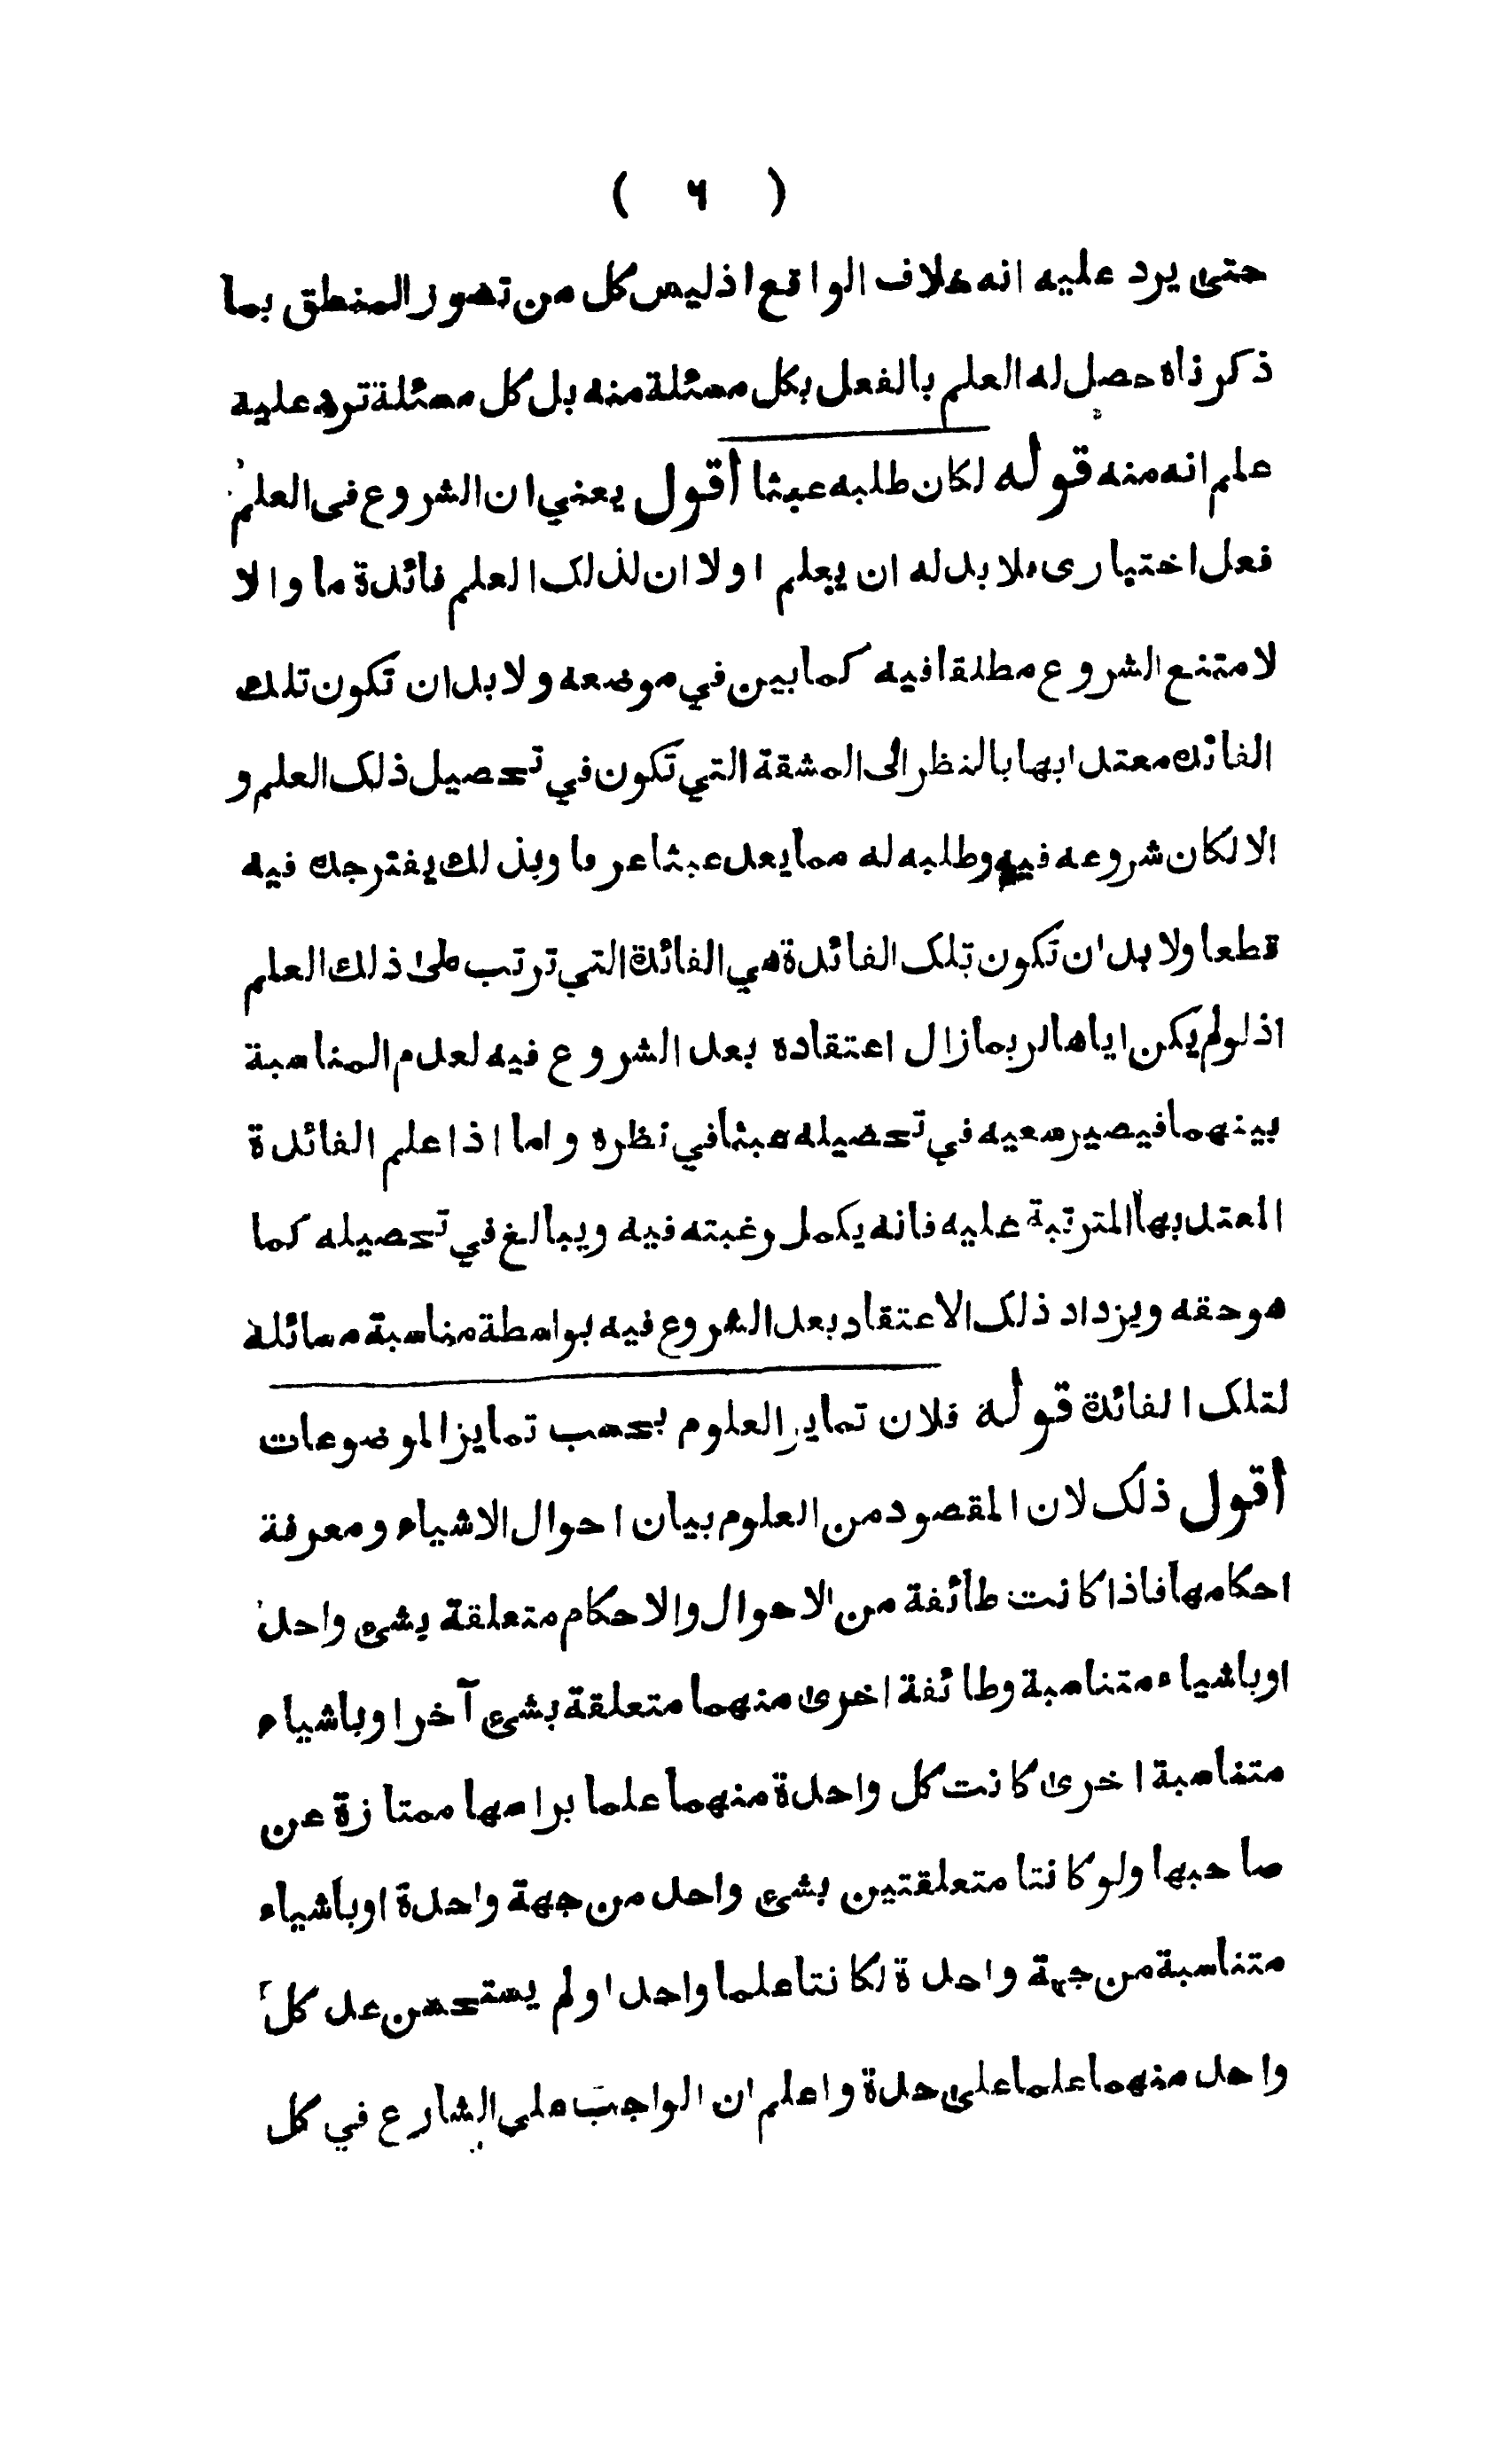 ( ٦ )
حتى يرد عليه انه خلاف الواقع اذليس كل من تصور المنطق بما
ذكرناه حصل له العلم بالفعل بكل مسئلة منه بل كل مسئلة ترد عليه
علم انه منه قوله لكان طلبه عبثا أقول يعني ان الشروع فى العلم
فعل اختيارى فلا بد له ان يعلم اولا ان لذلك العلم فائدة ما والا
لامتنع الشروع مطلقا فيه كما بين في موضعه ولا بد ان تكون تلك
الفائدة معتدا بها بالنظر الى المشقة التي تكون في تحصيل ذلك العلم و
الا لكان شروعه فيه وطلبه له مما يعد عبثا عرفا وبذلك يفتر جده فيه
قطعا ولا بد ان تكون تلك الفائدة هي الفائدة التي ترتب على ذلك العلم
اذ لو لم يكن اياها لربما زال اعتقاده بعد الشروع فيه لعدم المناسبة
بينهما فيصير سعيه في تحصيله عبثا في نظره واما اذا علم الفائدة
المعتد بها المترتبة عليه فانه يكمل رغبته فيه ويبالغ في تحصيله كما
هو حقه ويزداد ذلك الاعتقاد بعد الشروع فيه بواسطة مناسبة مسائله
لتلك الفائدة قوله فلان تمايز العلوم بحسب تمايز الموضوعات
أقول ذلك لان المقصود من العلوم بيان احوال الاشياء ومعرفة
احكامها فاذا كانت طائفة من الاحوال والاحكام متعلقة بشىء واحد
او باشياء متناسبة وطائفة اخرى منهما متعلقة بشىء آخر او باشياء
متناسبة اخرى كانت كل واحدة منهما علما براسها ممتازة عن
صاحبها ولو كانتا متعلقتين بشىء واحد من جهة واحدة او باشياء
متناسبة من جهة واحدة لكانتا علما واحدا ولم يستحسن عد كل
واحد منهما علما على حدة واعلم ان الواجب على الشارع في كل